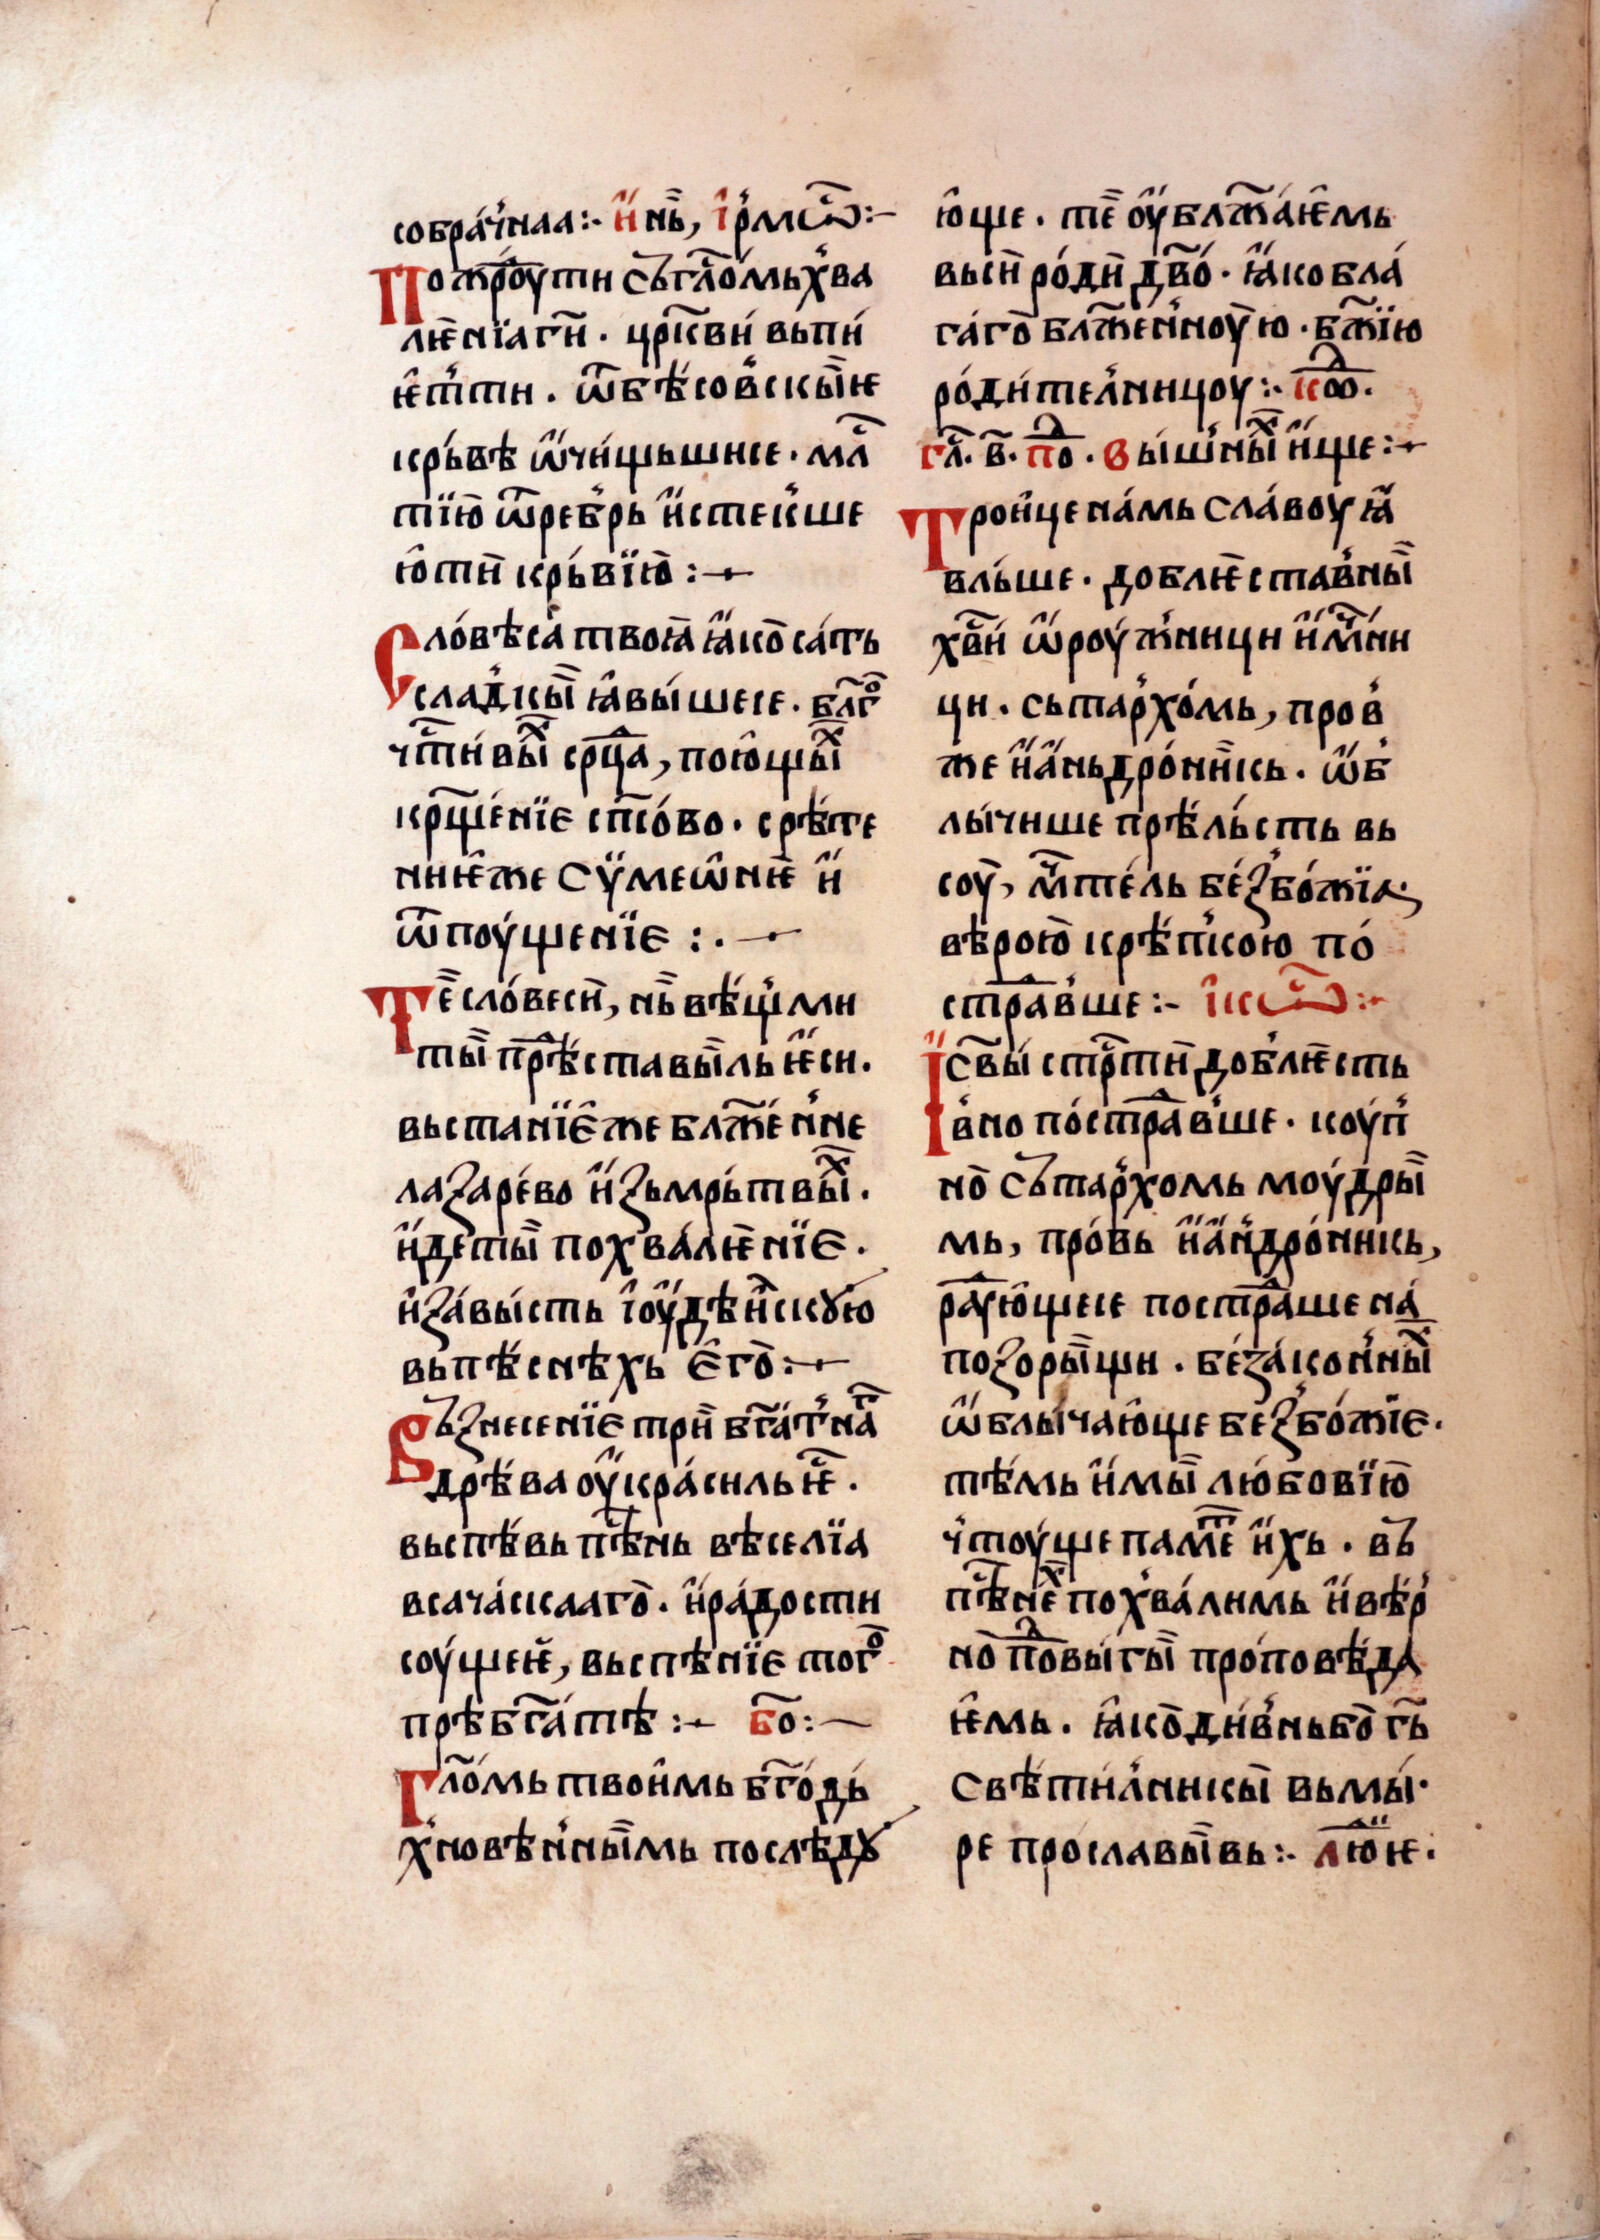 собра́чнаа :· И҆ нь҃, і҆рмѡⷭ҇ :-
По жрꙋ҃ти съ гл҃о́мь хва
лѥ́нїа гн҃. цр҃кви́ вьпи́
ѥ҆ть ти. ѿ бѣсо́вскы̏ѥ
крь́вѣ ѡ҆чи́щьшисе. мл҃
тїю̀ ѿ ре́брь и҆сте́кше
ю҆ ти̏ крь́вїю̀ :-
Сло́вѣса̀ твоꙗ҆̀ ꙗ҆́ко̀ са́ть
сла́дкы̏ ꙗ҆вы́шесе. бл҃гоⷱ
чⷭ҇ти́вы̏ⷯ срⷣца, пою҆щы̏ⷯ
крⷳ҇ще́нїе сп҃со́во. срѣ́те
ниѥ҆́же сѷмеѡ́нѥ и҆
ѿпоу́щенїе :. -
Те̏ сло́веси̏, нь̏ вѣ́щмы
ты̏ прѣⷣста́вы̏ль ѥ҆си.
вьстанїе҆́же бл҃же́нне
ла́ꙁаре́во и҆ꙁь мрь́твы̏ⷯ.
и҆де́ ты̏ похва́лѥнїе.
и҆ ꙁа́вы́сть і҆оу҆дѣ́искꙋю
вь пѣ́снѣхь е҆го̀ :-
Въꙁнесенїе́ три̏ бг҃а́тнаⷢ
дрѣ́ва оу҆кра́силь ѥⷭ҇.
вьспѣ́вь пѣⷭ҇нь вѣселїа
всача́скааго̀. и҆ ра́дости
соу́щеѥ, вьспѣ́нїе тогоⷤ
прѣбг҃а́тѣ :- бо҃ :-
Гл҃о́мь твои҆́мь бг҃о́дь́
хно́вѣннны̏мь послѣ́дꙋ
ю҆ще. те̏ оу҆блж҃а́ѥ҆мь
вьси̏ ро́ди̏ дв҃о́. ꙗ҆́ко бла́
га́го̀ блж҃е́нноу̏ю. бж҃їю
ро́ди́телницоу :· коⷣ.
гл҃. в҃. поⷣ. Вы́шны̏ⷯ и҆ще :-
Трои́це на́мь сла́воу ꙗ҆́
вль́ше. доблѥставны̏
хв҃и́ ѡ҆роу́жници и҆ мⷱ҇ни
ци. сь тархо́мь, про́в
же и҆ а҆ньдро́ни̏кь. ѡ҆б
лы́чише прѣ́льсть вь
соу̏, мⷱ҇те́ль беꙁбо́жїа.
вѣрою̀ крѣ́пкою по́
страⷣа́вше :- і҆коⷭ҇ :-
І҆св҃ы́ стрⷭ҇ти̏ до́блѥсть
в́но по́страⷣа́вше. коу́п
но̀ съ тархомь моу́дры̏
мь, про́вь и҆ а҆ндро́никь,
раⷣу́ю҆щесе пострⷣаше на́
поꙁоры̏щи. беꙁа́конны̏ⷯ
ѡ҆бль́ча́ю҆ще беꙁбо́жїе.
тѣ́мь и҆ мы̏ лю́бовїю̀
чтоу́ще паме́ⷮ и҆хь. въ
пѣⷭ҇не́ⷯ похва́лимь и҆ вѣ́р
но̀ поⷣвы́гы̏ про́повѣ́да
ѥ҆мь. ꙗ҆́ко̀ ди́внь бо̀ гь̃
свѣти́лникы̏ вь мы́.
ре прославы̏вь :- люⷣѥ.